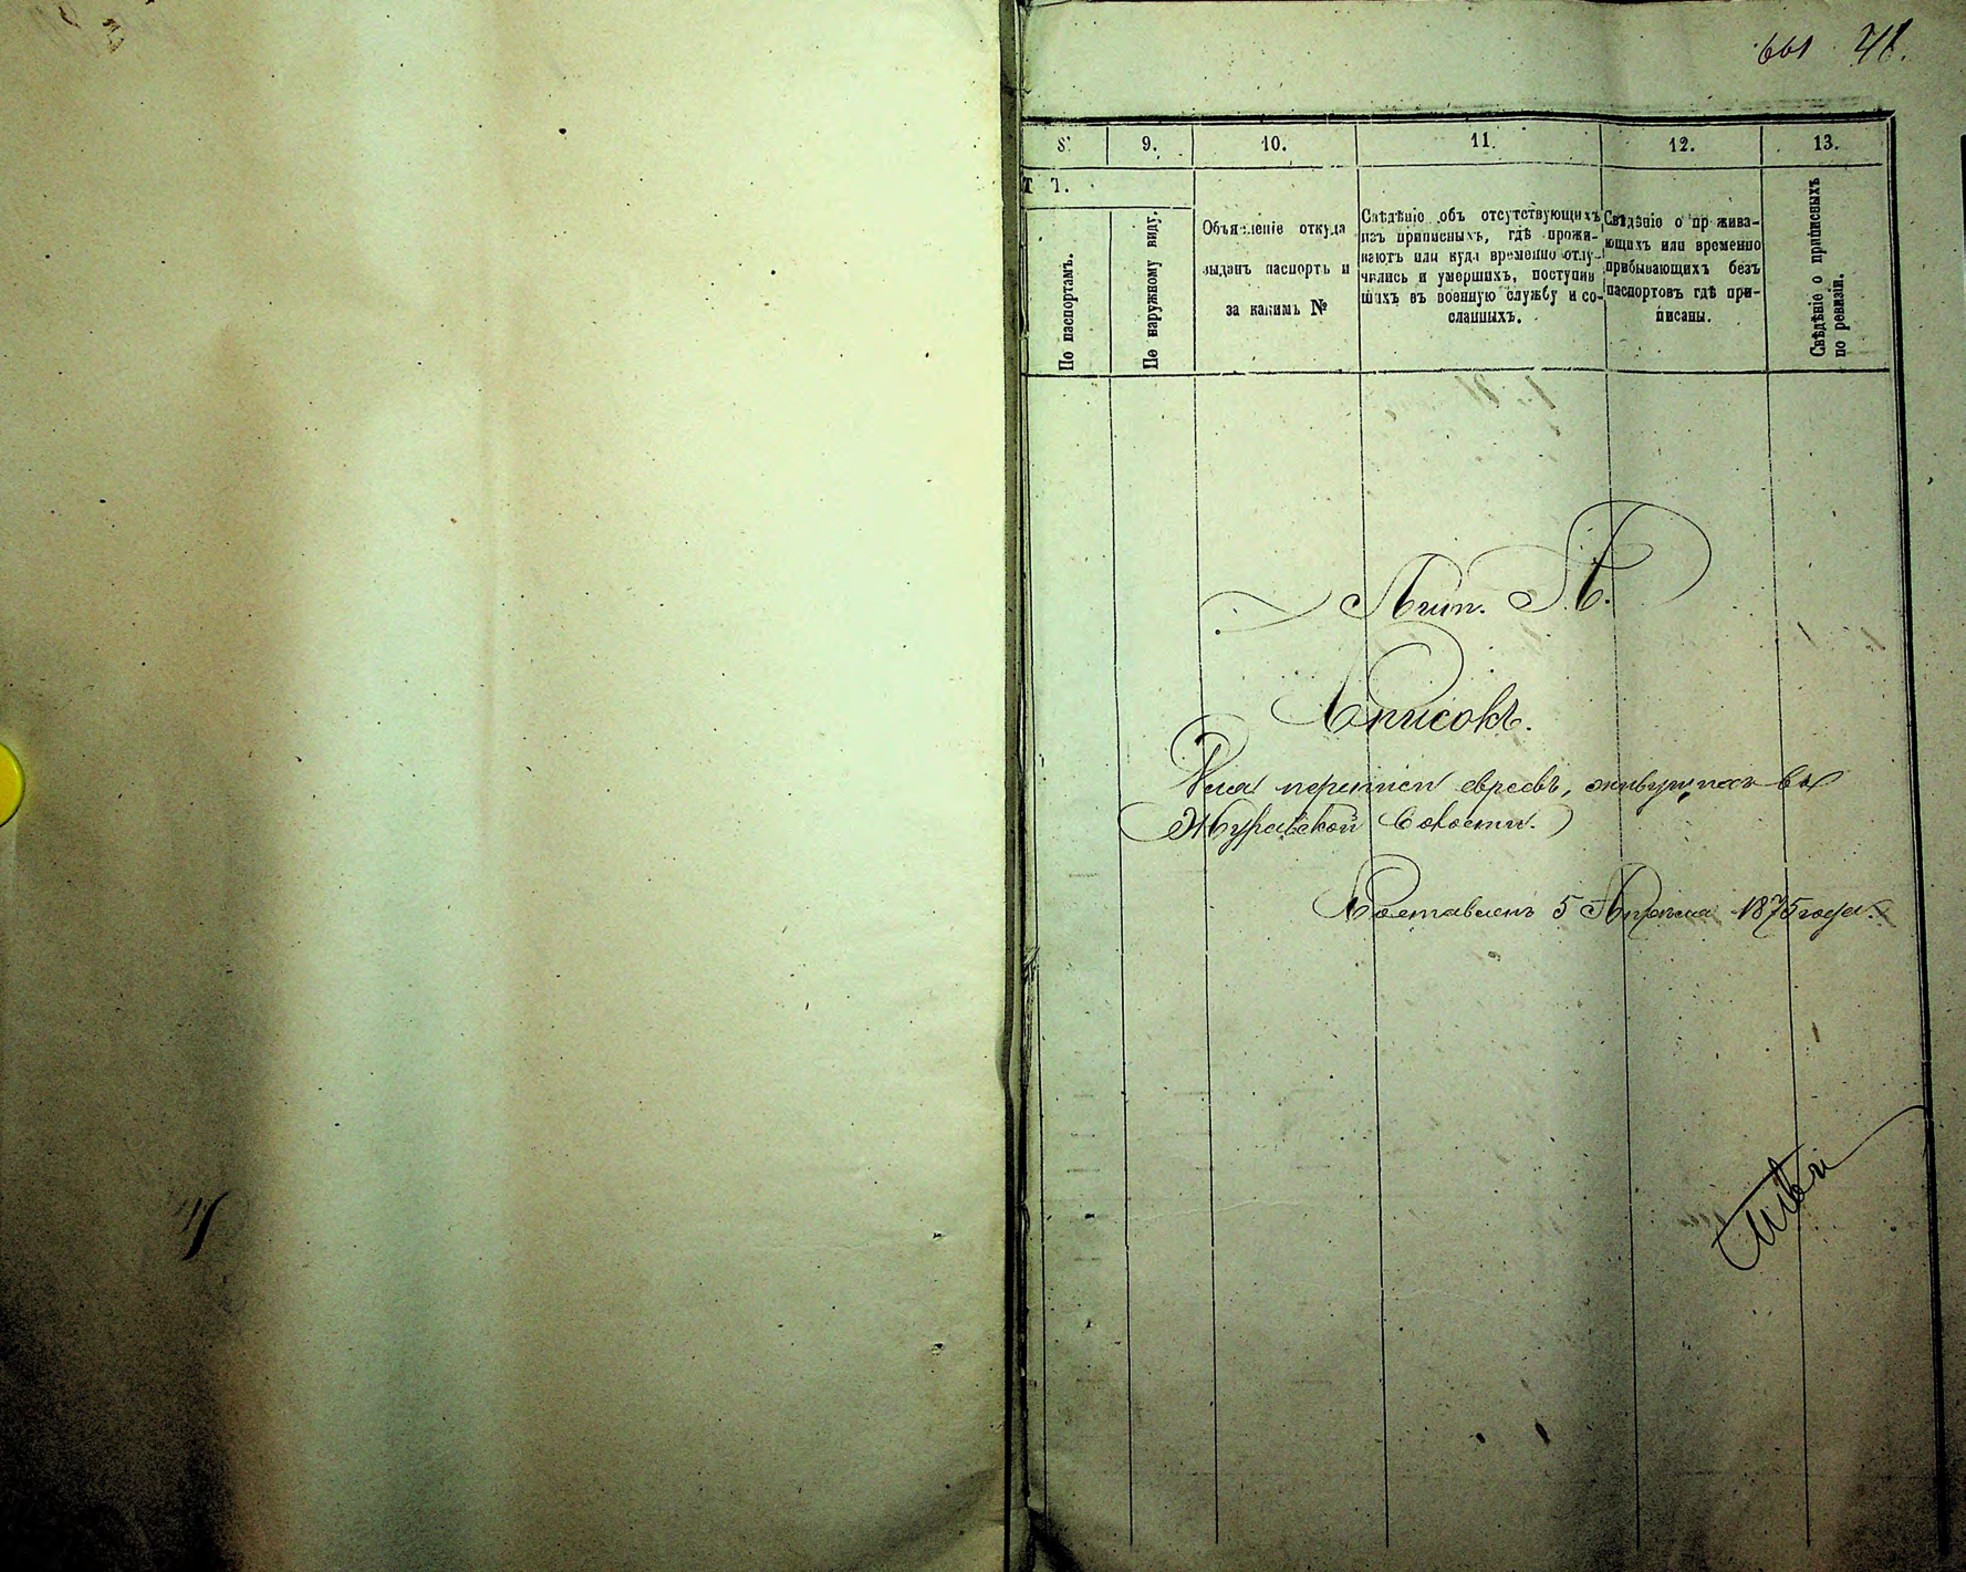 661 41.
8. 9. 10. 11. 12. 13.
Т Ъ.
По паспортамъ.
По наружному виду.
Объявленіе откуда
выданъ паспортъ и
за какимъ №
Свѣдѣніе объ отсутствующихъ
изъ приписныхъ, гдѣ прожи-
ваютъ или куда временно отлу-
чились и умершихъ, поступив
шихъ въ военную службу и со-
сланныхъ.
Свѣдѣніе о прожива-
ющихъ или временно
прибывающихъ безъ
паспортовъ гдѣ при-
писаны.
Свѣдѣніе о приписныхъ
по ревизіи.
Лит. А.
Списокъ.
Для переписи евреевъ, живущихъ въ
Журавской волости.
Составленъ 5 Апрѣля 1875 года.